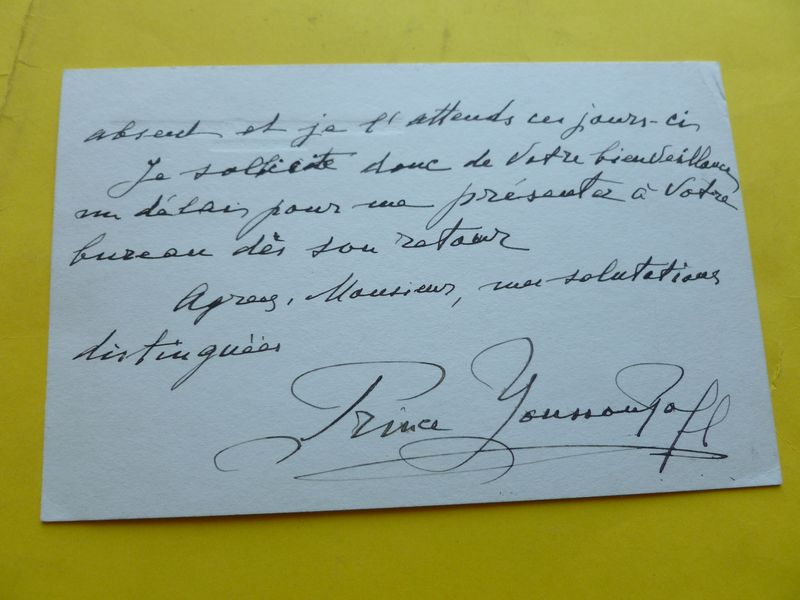 absent et je l'attends ces jours-ci
Je sollicite donc de Votre bienveillance
un délai pour me présenter à Votre
bureau dès son retour
Agréez, Monsieur, mes salutations
distinguées
Prince Youssoupoff